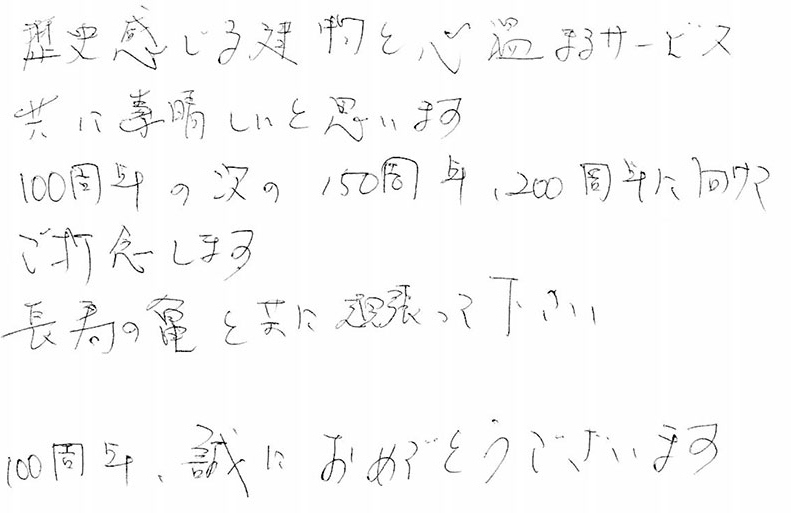 歴史感じる建物と心温まるサービス
共に素晴しいと思います
100周年の次の150周年、200周年に向けて
ご祈念します
長寿の亀と共に頑張って下さい
100周年、誠におめでとうございます